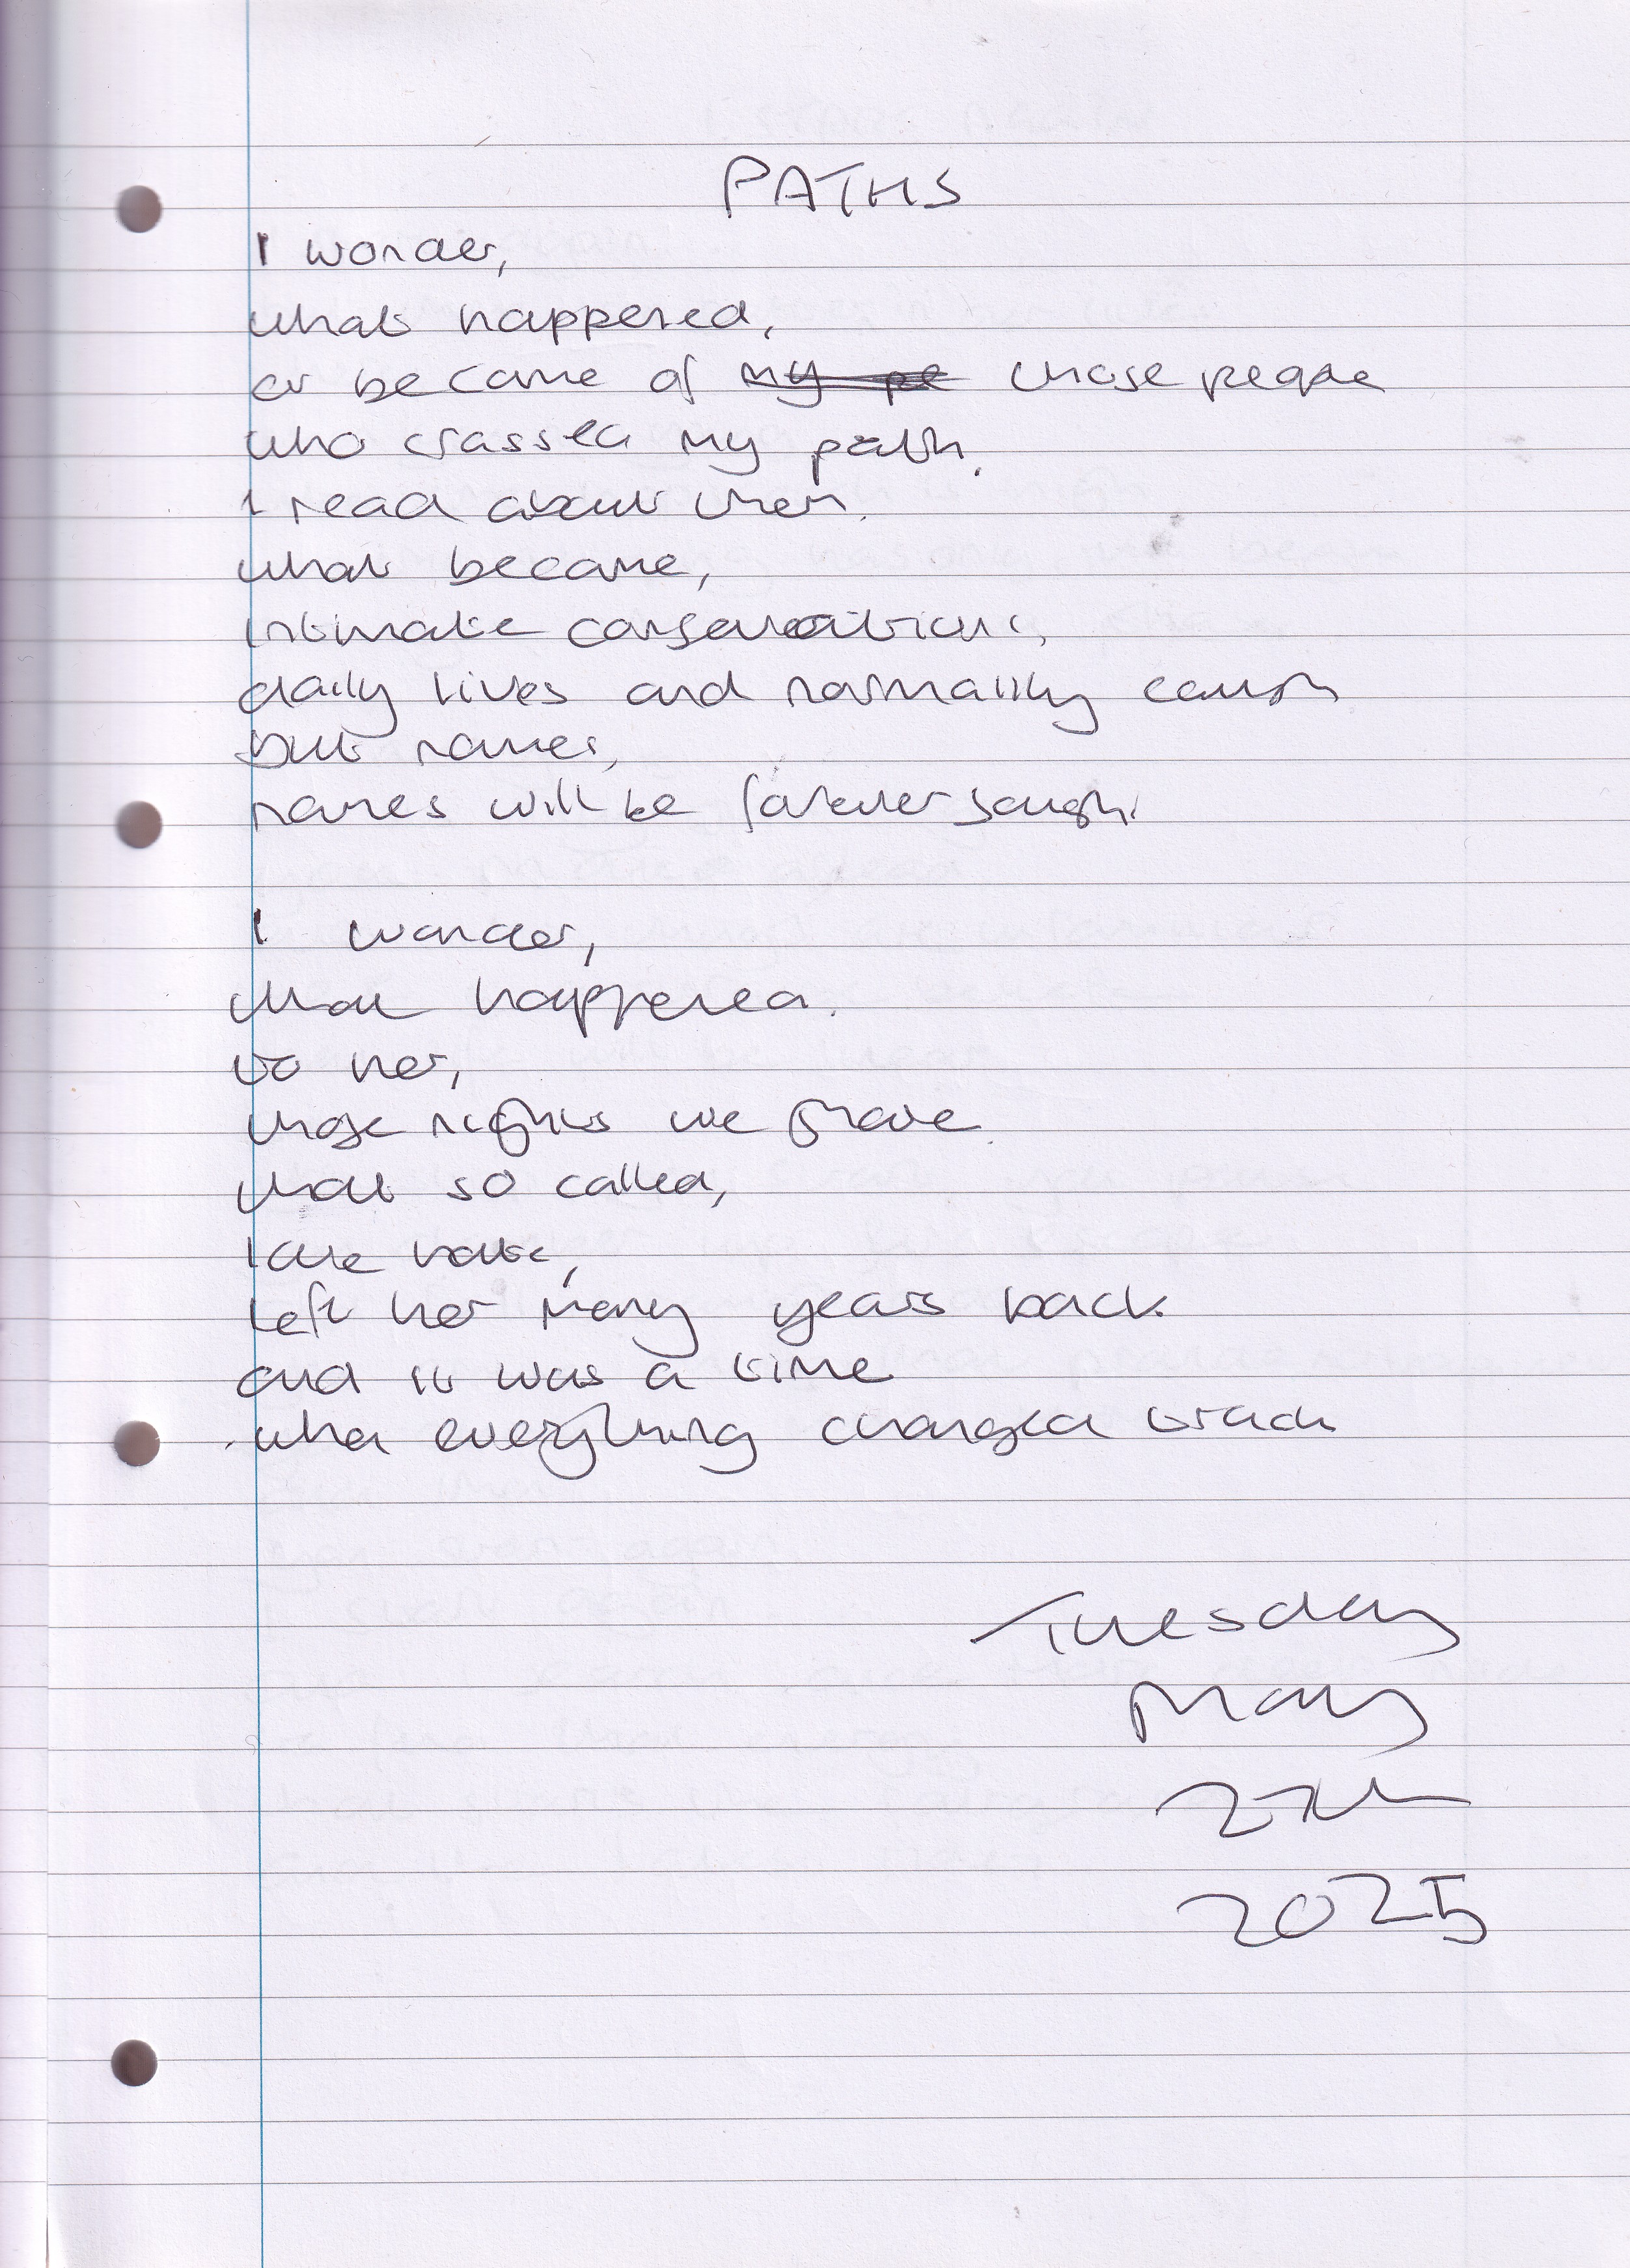 PATHS
I wonder,
what happened,
or became of my pe those people
who crossed my path.
I read about them.
what became,
intimate conservations,
daily lives and normality caugh
but names,
names will be forever sough
I wonder,
what happened.
to her,
those nights we phone.
that so called,
love hate,
left her many years back
and it was a time
when everything changed track
Tuesday
May
27th
2025